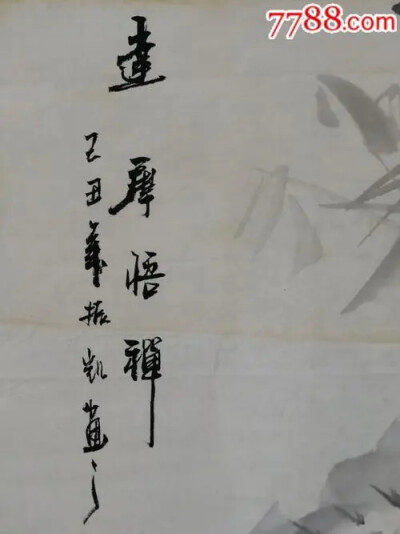 7788.com
達摩悟禪
己丑年振凱畫之